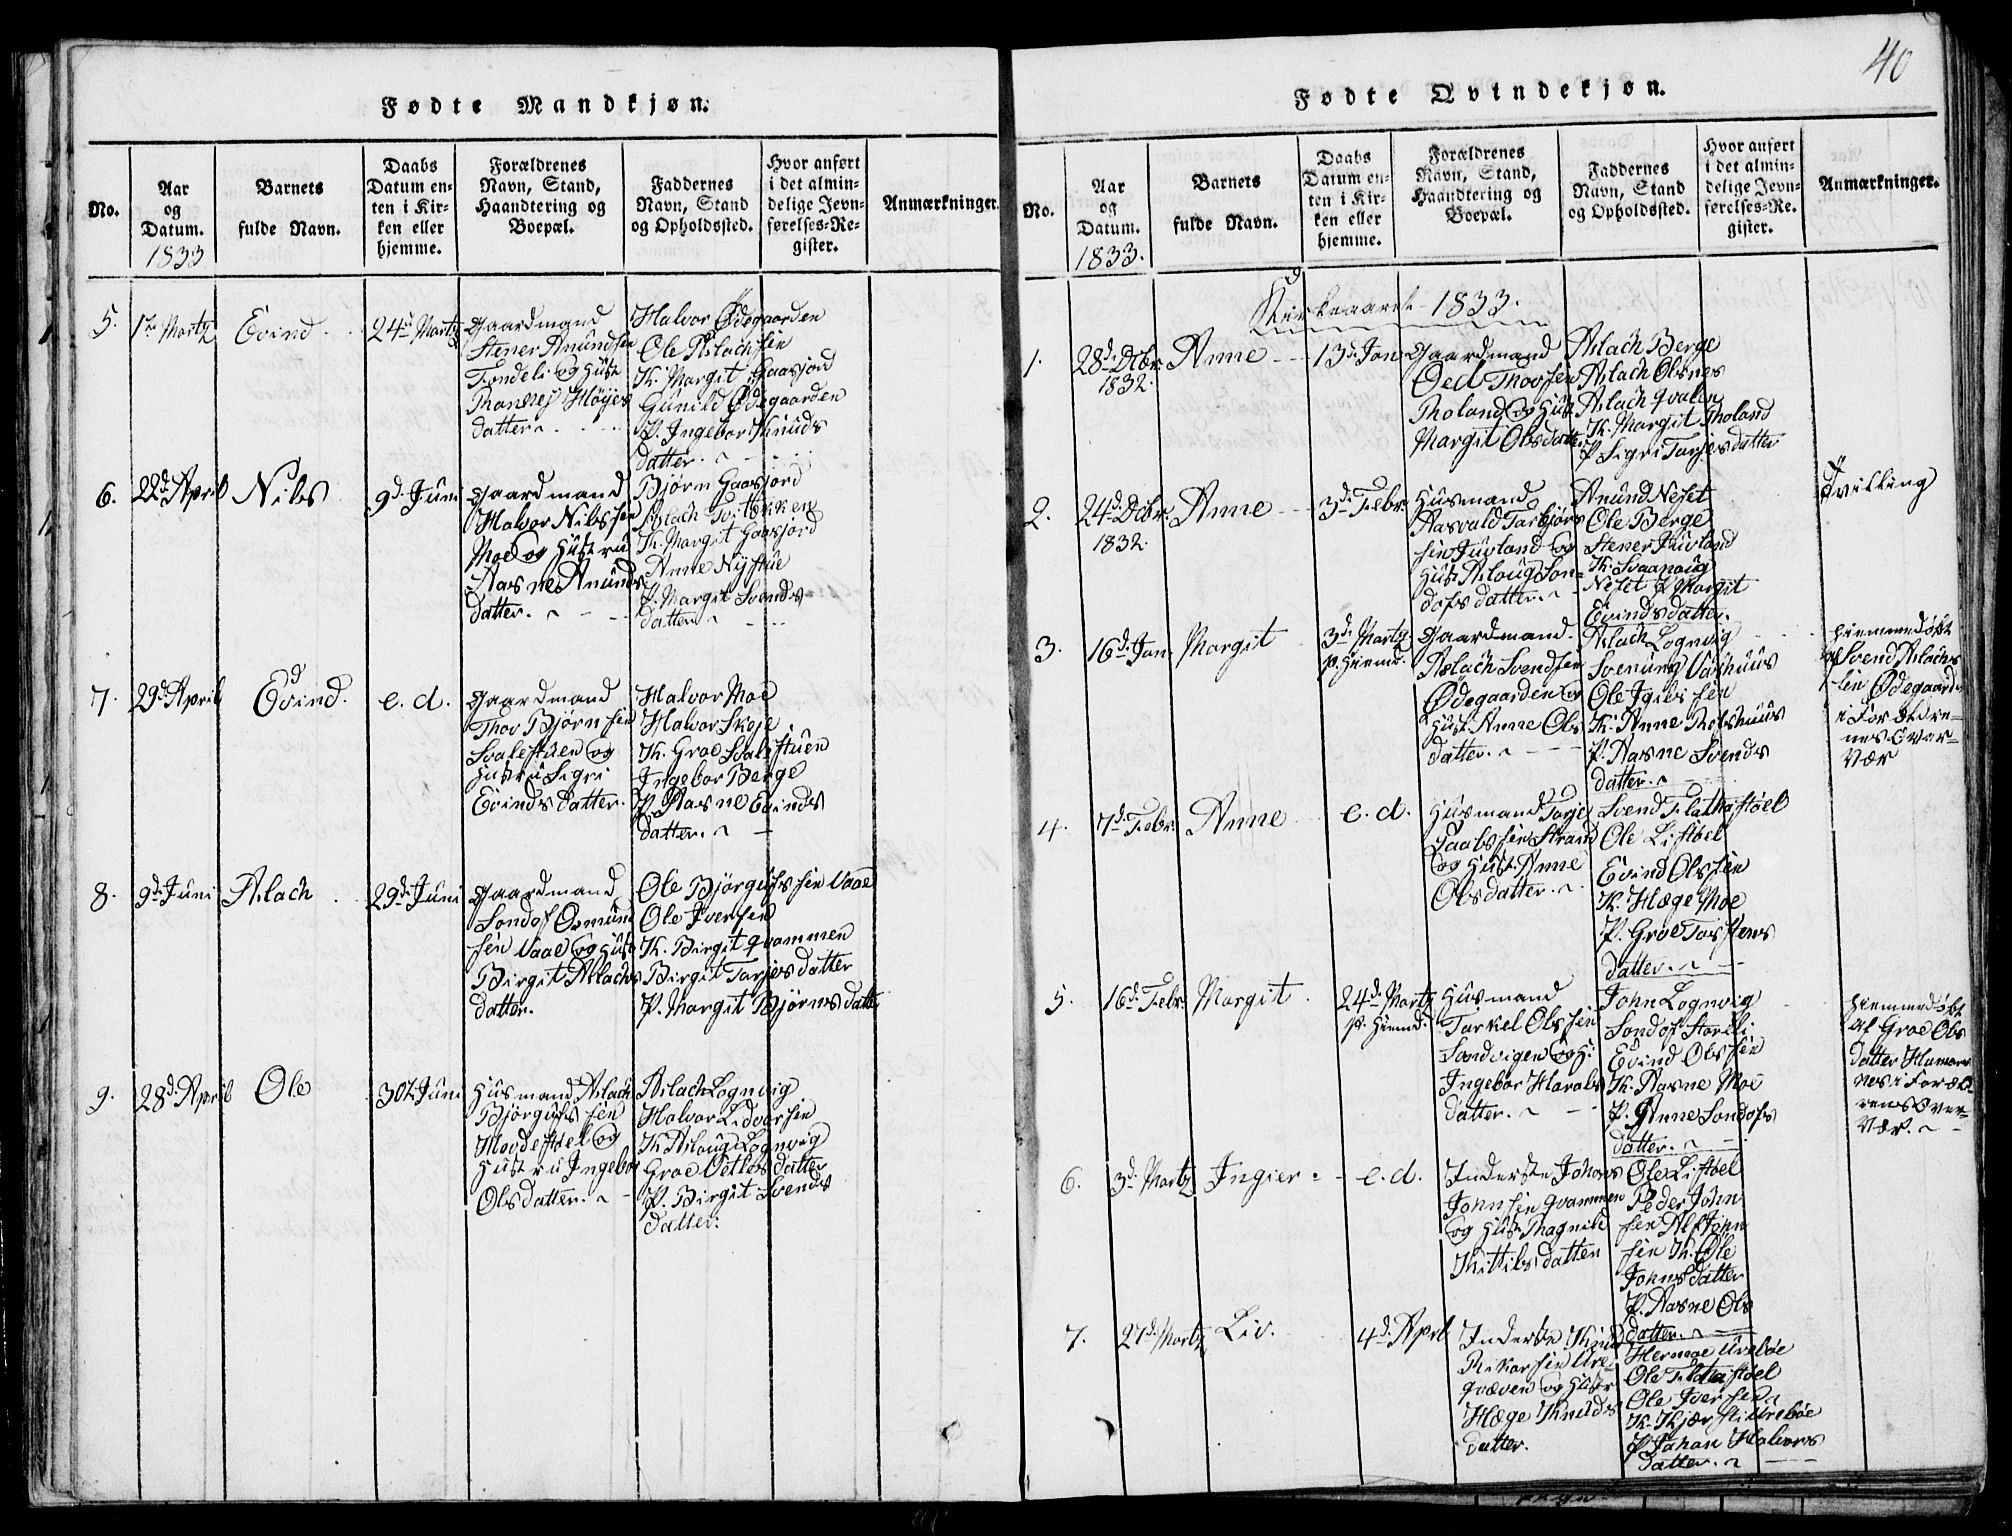 40
Fødte Mandkjøn.
No.
Aar og Datum. 1833
Barnets fulde Navn.
Daabs Datum enten i Kirken eller hjemme.
Forældrenes Navn, Stand, Haandtering og Boepæl.
Faddernes Navn, Stand og Opholdssted.
Hvor anført i det almindelige Jevnførelses-Register.
Anmærkninger.
5. 1ste Martz Evind 24de Martz
Gaardmand
Stener Anundsen
og Hust
Datter
Halvor Ødegaarden
Ole Aslachsen
K. Margit Gaasjord
Gunild Ødegaarden
P. Ingebor Knuds
datter.
6. 22d April Niels 9d Juni
Gaardmand
Halvor Nielssen
Moe og Hustru
Aasne Anunds
datter.
Bjørn Gaasjord
Aslach
K. Margit Gaasjord
Anne Nystue
P. Margit Svends
datter
7. 29d April Evind. e. d.
Gaardmand
Thor Bjørnsen
Svalestuen og
Hustru Sigri
Evindsdatter.
Halvor Moe
Halvor Skoje
K. Groe Svalestuen
Ingebor Berge
P. Aasne Evinds
datter.
8. 9d Juni Aslach 29d Juni
Gaardmand
Sondof Osmund
sen Vaae og Hust
Birgit Aslachs
datter.
Ole Bjørgufssen Vaae
Ole Iversen
K. Birgit Qvammen
Birgit Tarjesdatter
P. Margit Bjørnsdatter
9. 28d April Ole 30te Juni
Husmand Aslach
Bjørgufssen
og
Hustru Ingebor
Olsdatter.
Aslach Lognvig
Halvor Lidvorsen
K. Aslaug Lognvig
Groe Vetlesdatter
P. Birgit Svends
datter.
Fødte Qvindekjøn.
No.
Aar og Datum. 1833.
Barnets fulde Navn.
Daabs Datum enten i Kirken eller hjemme.
Forældrenes Navn, Stand, Haandtering og Boepæl.
Faddernes Navn, Stand og Opholdssted.
Hvor anført i det almindelige Jevnførelses-Register.
Anmærkninger.
Kirkeaaret 1833.
1. 28d Decbr. 1832. Anne 13d Jan
Gaardmand
Oed Thovsen
Tholand og Hust
Margit Olsdatter
Aslach Berge
Aslach Olsnes
Aslach Qvalen
K. Margit Tholand
P. Sigri Tarjesdatter
2. 24d Decbr. 1832. Anne 3d Febr.
Husmand
Aasvald Tarbjørn
sen Juvland og
Hust Aslaug Son
dofsdatter.
Anund Neset
Ole Berge
Stener Juvland
K. Svaanaug
Neset P. Margit
Evindsdatter.
Tvilling
3. 16d Jan Margit 3d Martz p. Hiemd.
Gaardmand
Aslach Svendsen
Ødegaarden og
Hust Anne Ols
datter.
Aslach Lognvig
Svenung Vaahuus
Ole
K. Anne
P. Aasne Svends
datter.
hiemmedøbt
af Svend Aslach
sen Ødegaarden
i Forældre-
nes Over-
vær
4. 7d Febr. Anne e. d.
Husmand Tarje
Strand
og Hust. Anne
Olsdatter.
Svend
Ole Listøel
Evind Olssen
K. Hæge Moe
P. Groe Torstens
datter.
5. 16d Febr. Margit 24d Martz p. Hiemd.
Husmand
Tarkel Olssen
Sandvigen og H:
Ingebor Haralds
datter.
John Lognvig
Sondof
Evind Olssen
K. Aasne Moe
P. Anne Sondofs
datter.
hiemmedøbt
af Groe Ols
datter
i Foræld
rens Over-
vær.
6. 3d Martz Ingier e. d.
Inderste Johans
Johnsen Qvammen
og Hust Thagnill
Kittilsdatter
Ole Listøel
Peder John
sen Alf John
sen K. Ole
Johnsdatter
P. Aasne Ols
datter.
7. 27d Martz Liv. 4d April
Inderste Knud
Rikarsen Ure
qvæven og Hust
Hæge Knuds
datter.
Hermoe Urebøe
Ole
Ole Iversen
K. Kjærsti Urebøe
P. Johan Halvors
datter.